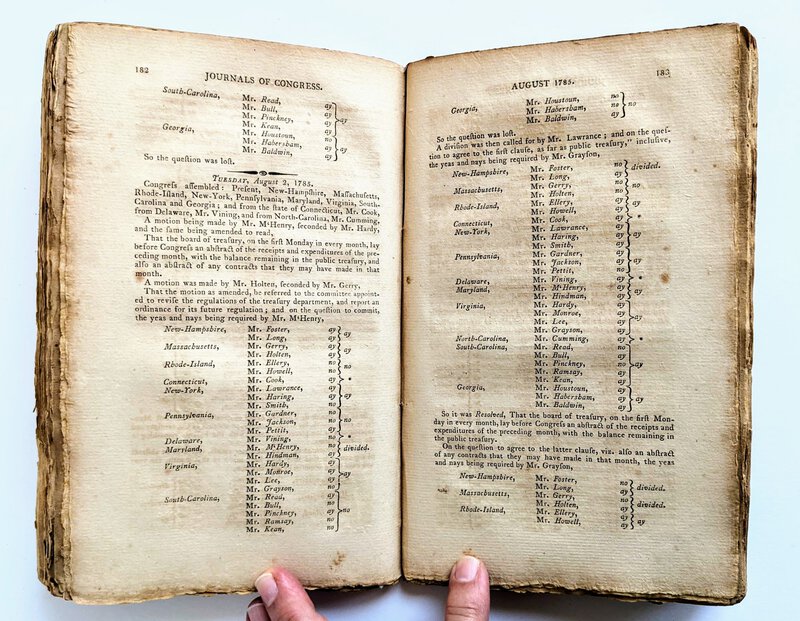 182
JOURNALS OF CONGRESS.
South-Carolina, Mr. Read, ay
Mr. Bull, ay
Mr. Pinckney, ay } ay
Mr. Kean, ay
Georgia, Mr. Houstoun, no
Mr. Habersham, ay } ay
Mr. Baldwin, ay
So the queſtion was loſt.
TUESDAY, Auguſt 2, 1785.
Congreſs aſſembled: Preſent, New-Hampſhire, Maſſachuſetts,
Rhode-Iſland, New-York, Pennſylvania, Maryland, Virginia, South-
Carolina and Georgia; and from the ſtate of Connecticut, Mr. Cook,
from Delaware, Mr. Vining, and from North-Carolina, Mr. Cumming,
A motion being made by Mr. M'Henry, ſeconded by Mr. Hardy,
and the ſame being amended to read,
That the board of treaſury, on the firſt Monday in every month, lay
before Congreſs an abſtract of the receipts and expenditures of the pre-
ceding month, with the balance remaining in the public treaſury, and
alſo an abſtract of any contracts that they may have made in that
month.
A motion was made by Mr. Holten, ſeconded by Mr. Gerry,
That the motion as amended, be referred to the committee appoint-
ed to reviſe the regulations of the treaſury department, and report an
ordinance for its future regulation; and on the queſtion to commit,
the yeas and nays being required by Mr. M'Henry,
New-Hampſhire, Mr. Foſter, ay } ay
Mr. Long, ay
Maſſachuſetts, Mr. Gerry, ay } ay
Mr. Holten, ay
Rhode-Iſland, Mr. Ellery, no } no
Mr. Howell, no
Connecticut, Mr. Cook, ay } *
New-York, Mr. Lawrance, ay
Mr. Haring, ay } ay
Mr. Smith, no
Pennſylvania, Mr. Gardner, no
Mr. Jackſon, no } no
Mr. Pettit, ay
Delaware, Mr. Vining, no } *
Maryland, Mr. M'Henry, no } divided.
Mr. Hindman, ay
Virginia, Mr. Hardy, ay
Mr. Monroe, ay } ay
Mr. Lee, ay
Mr. Grayſon, no
South-Carolina, Mr. Read, ay
Mr. Bull, no
Mr. Pinckney, ay } no
Mr. Ramsay, no
Mr. Kean, no
AUGUST 1785.
183
Georgia, Mr. Houstoun, no
Mr. Habersham, no } no
Mr. Baldwin, ay
So the queſtion was loſt.
A diviſion was then called for by Mr. Lawrance; and on the queſ-
tion to agree to the firſt clauſe, as far as public treaſury," incluſive,
the yeas and nays being required by Mr. Grayſon,
New-Hampſhire, Mr. Foſter, no } divided.
Mr. Long, ay
Maſſachuſetts, Mr. Gerry, no } no
Mr. Holten, no
Rhode-Iſland, Mr. Ellery, ay } ay
Mr. Howell, ay
Connecticut, Mr. Cook, ay } *
New-York, Mr. Lawrance, ay
Mr. Haring, ay } ay
Mr. Smith, ay
Pennſylvania, Mr. Gardner, ay
Mr. Jackſon, ay } ay
Mr. Pettit, no
Delaware, Mr. Vining, ay } *
Maryland, Mr. M'Henry, ay } ay
Mr. Hindman, ay
Virginia, Mr. Hardy, ay
Mr. Monroe, ay } ay
Mr. Lee, ay
Mr. Grayſon, ay
North-Carolina, Mr. Cumming, ay } *
South-Carolina, Mr. Read, no
Mr. Bull, ay
Mr. Pinckney, no } ay
Mr. Ramsay, ay
Mr. Kean, ay
Georgia, Mr. Houstoun, ay
Mr. Habersham, ay } ay
Mr. Baldwin, ay
So it was Reſolved, That the board of treaſury, on the firſt Mon-
day in every month, lay before Congreſs an abſtract of the receipts and
expenditures of the preceding month, with the balance remaining in
the public treaſury.
On the queſtion to agree to the latter clauſe, viz. alſo an abſtract
of any contracts that they may have made in that month, the yeas
and nays being required by Mr. Grayſon,
New-Hampſhire, Mr. Foſter, no } divided.
Mr. Long, ay
Maſſachuſetts, Mr. Gerry, no } divided.
Mr. Holten, ay
Rhode-Iſland, Mr. Ellery, ay } ay
Mr. Howell, ay